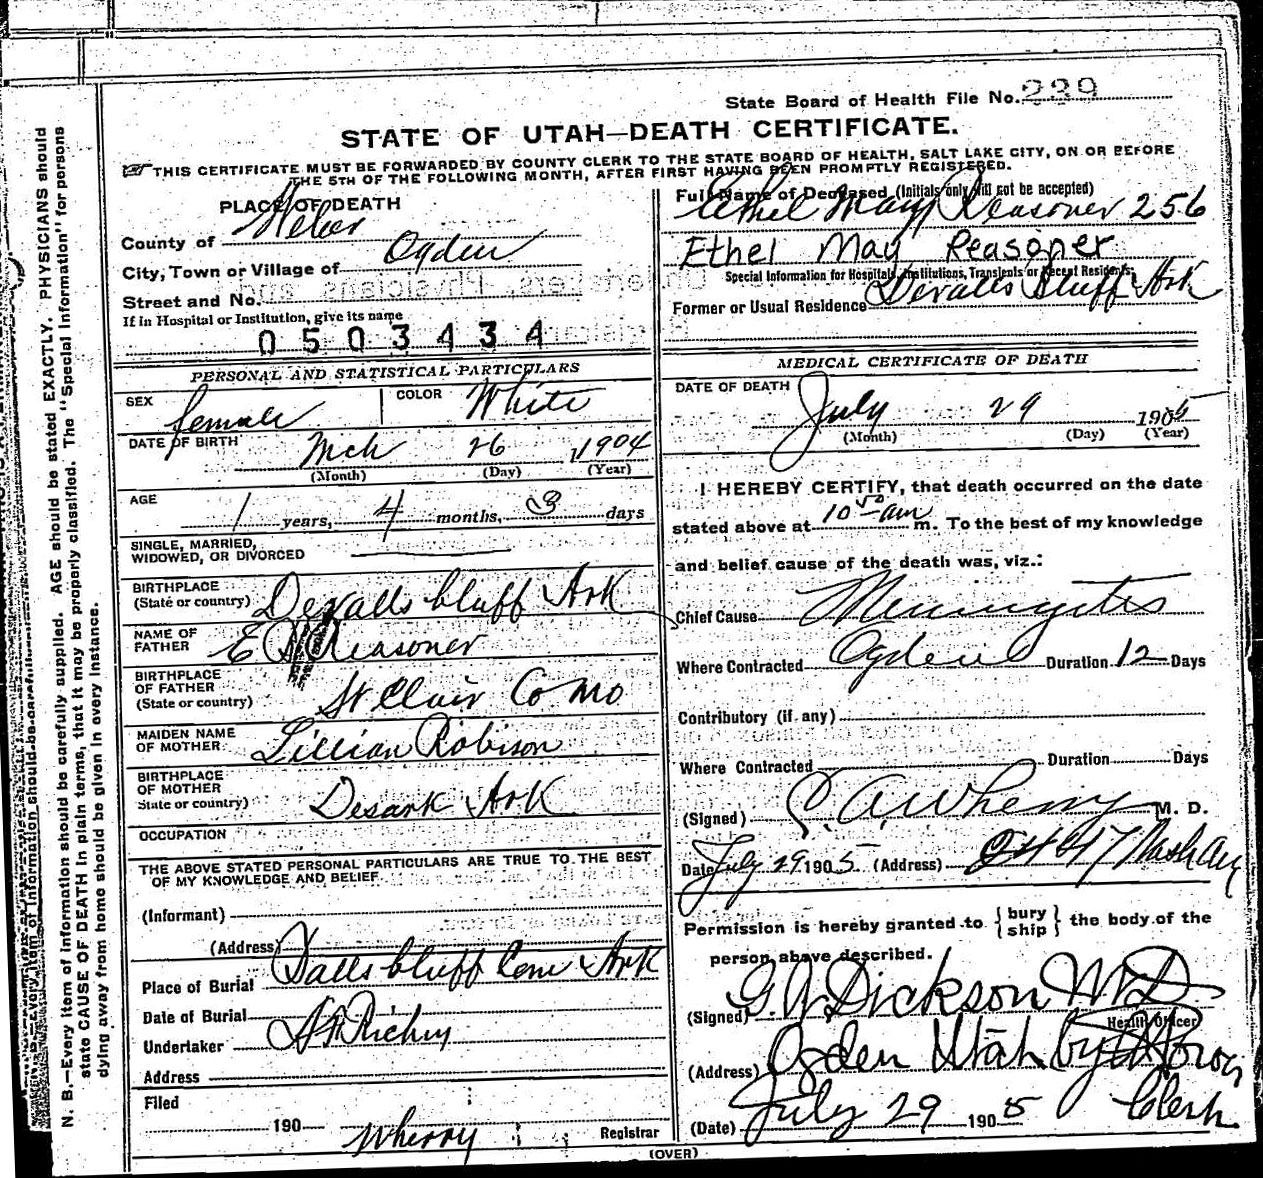 State Board of Health File No. 239
STATE OF UTAH—DEATH CERTIFICATE.
THIS CERTIFICATE MUST BE FORWARDED BY COUNTY CLERK TO THE STATE BOARD OF HEALTH, SALT LAKE CITY, ON OR BEFORE
THE 5TH OF THE FOLLOWING MONTH, AFTER FIRST HAVING BEEN PROMPTLY REGISTERED.
PLACE OF DEATH
County of Weber
City, Town or Village of Ogden
Street and No.
If in Hospital or Institution, give its name
0503434
PERSONAL AND STATISTICAL PARTICULARS
SEX female COLOR White
DATE OF BIRTH Mch 26 1904
(Month) (Day) (Year)
AGE
1 years, 4 months, 3 days
SINGLE, MARRIED,
WIDOWED, OR DIVORCED
BIRTHPLACE
(State or country) Devalls bluff Ark
NAME OF
FATHER E Reasoner
BIRTHPLACE
OF FATHER
(State or country) St Clair Co Mo
MAIDEN NAME
OF MOTHER Lillian Robison
BIRTHPLACE
OF MOTHER
State or country) Desark Ark
OCCUPATION
THE ABOVE STATED PERSONAL PARTICULARS ARE TRUE TO THE BEST
OF MY KNOWLEDGE AND BELIEF
(Informant)
(Address)
Place of Burial Dallsbluff Cem Ark
Date of Burial
Undertaker Richey
Address
Filed
190 Wherry Registrar
Full Name of Deceased (Initials only will not be accepted)
Ethel May Reasoner 256
Ethel May Reasoner
Special Information for Hospitals, Institutions, Transients or Recent Residents:
Former or Usual Residence Devalls Bluff Ark
MEDICAL CERTIFICATE OF DEATH
DATE OF DEATH
July 29 1905
(Month) (Day) (Year)
I HEREBY CERTIFY, that death occurred on the date
stated above at 10 50 am m. To the best of my knowledge
and belief cause of the death was, viz.:
Chief Cause Meningites
Where Contracted Ogden Duration 12 Days
Contributory (if any)
Where Contracted Duration Days
(Signed) C. A. Wherry M. D.
Date July 29 1905 (Address) 2447 Wash Av
Permission is hereby granted to {bury ship} the body of the
person above described.
(Signed) G. W. Dickson MD
Health Officer
(Address) Ogden Utah by
(Date) July 29 1905 Clerk
(OVER)
N. B.—Every item of information should be carefully supplied. AGE should be stated EXACTLY. PHYSICIANS should
state CAUSE OF DEATH in plain terms, that it may be properly classified. The "Special Information" for persons
dying away from home should be given in every instance.